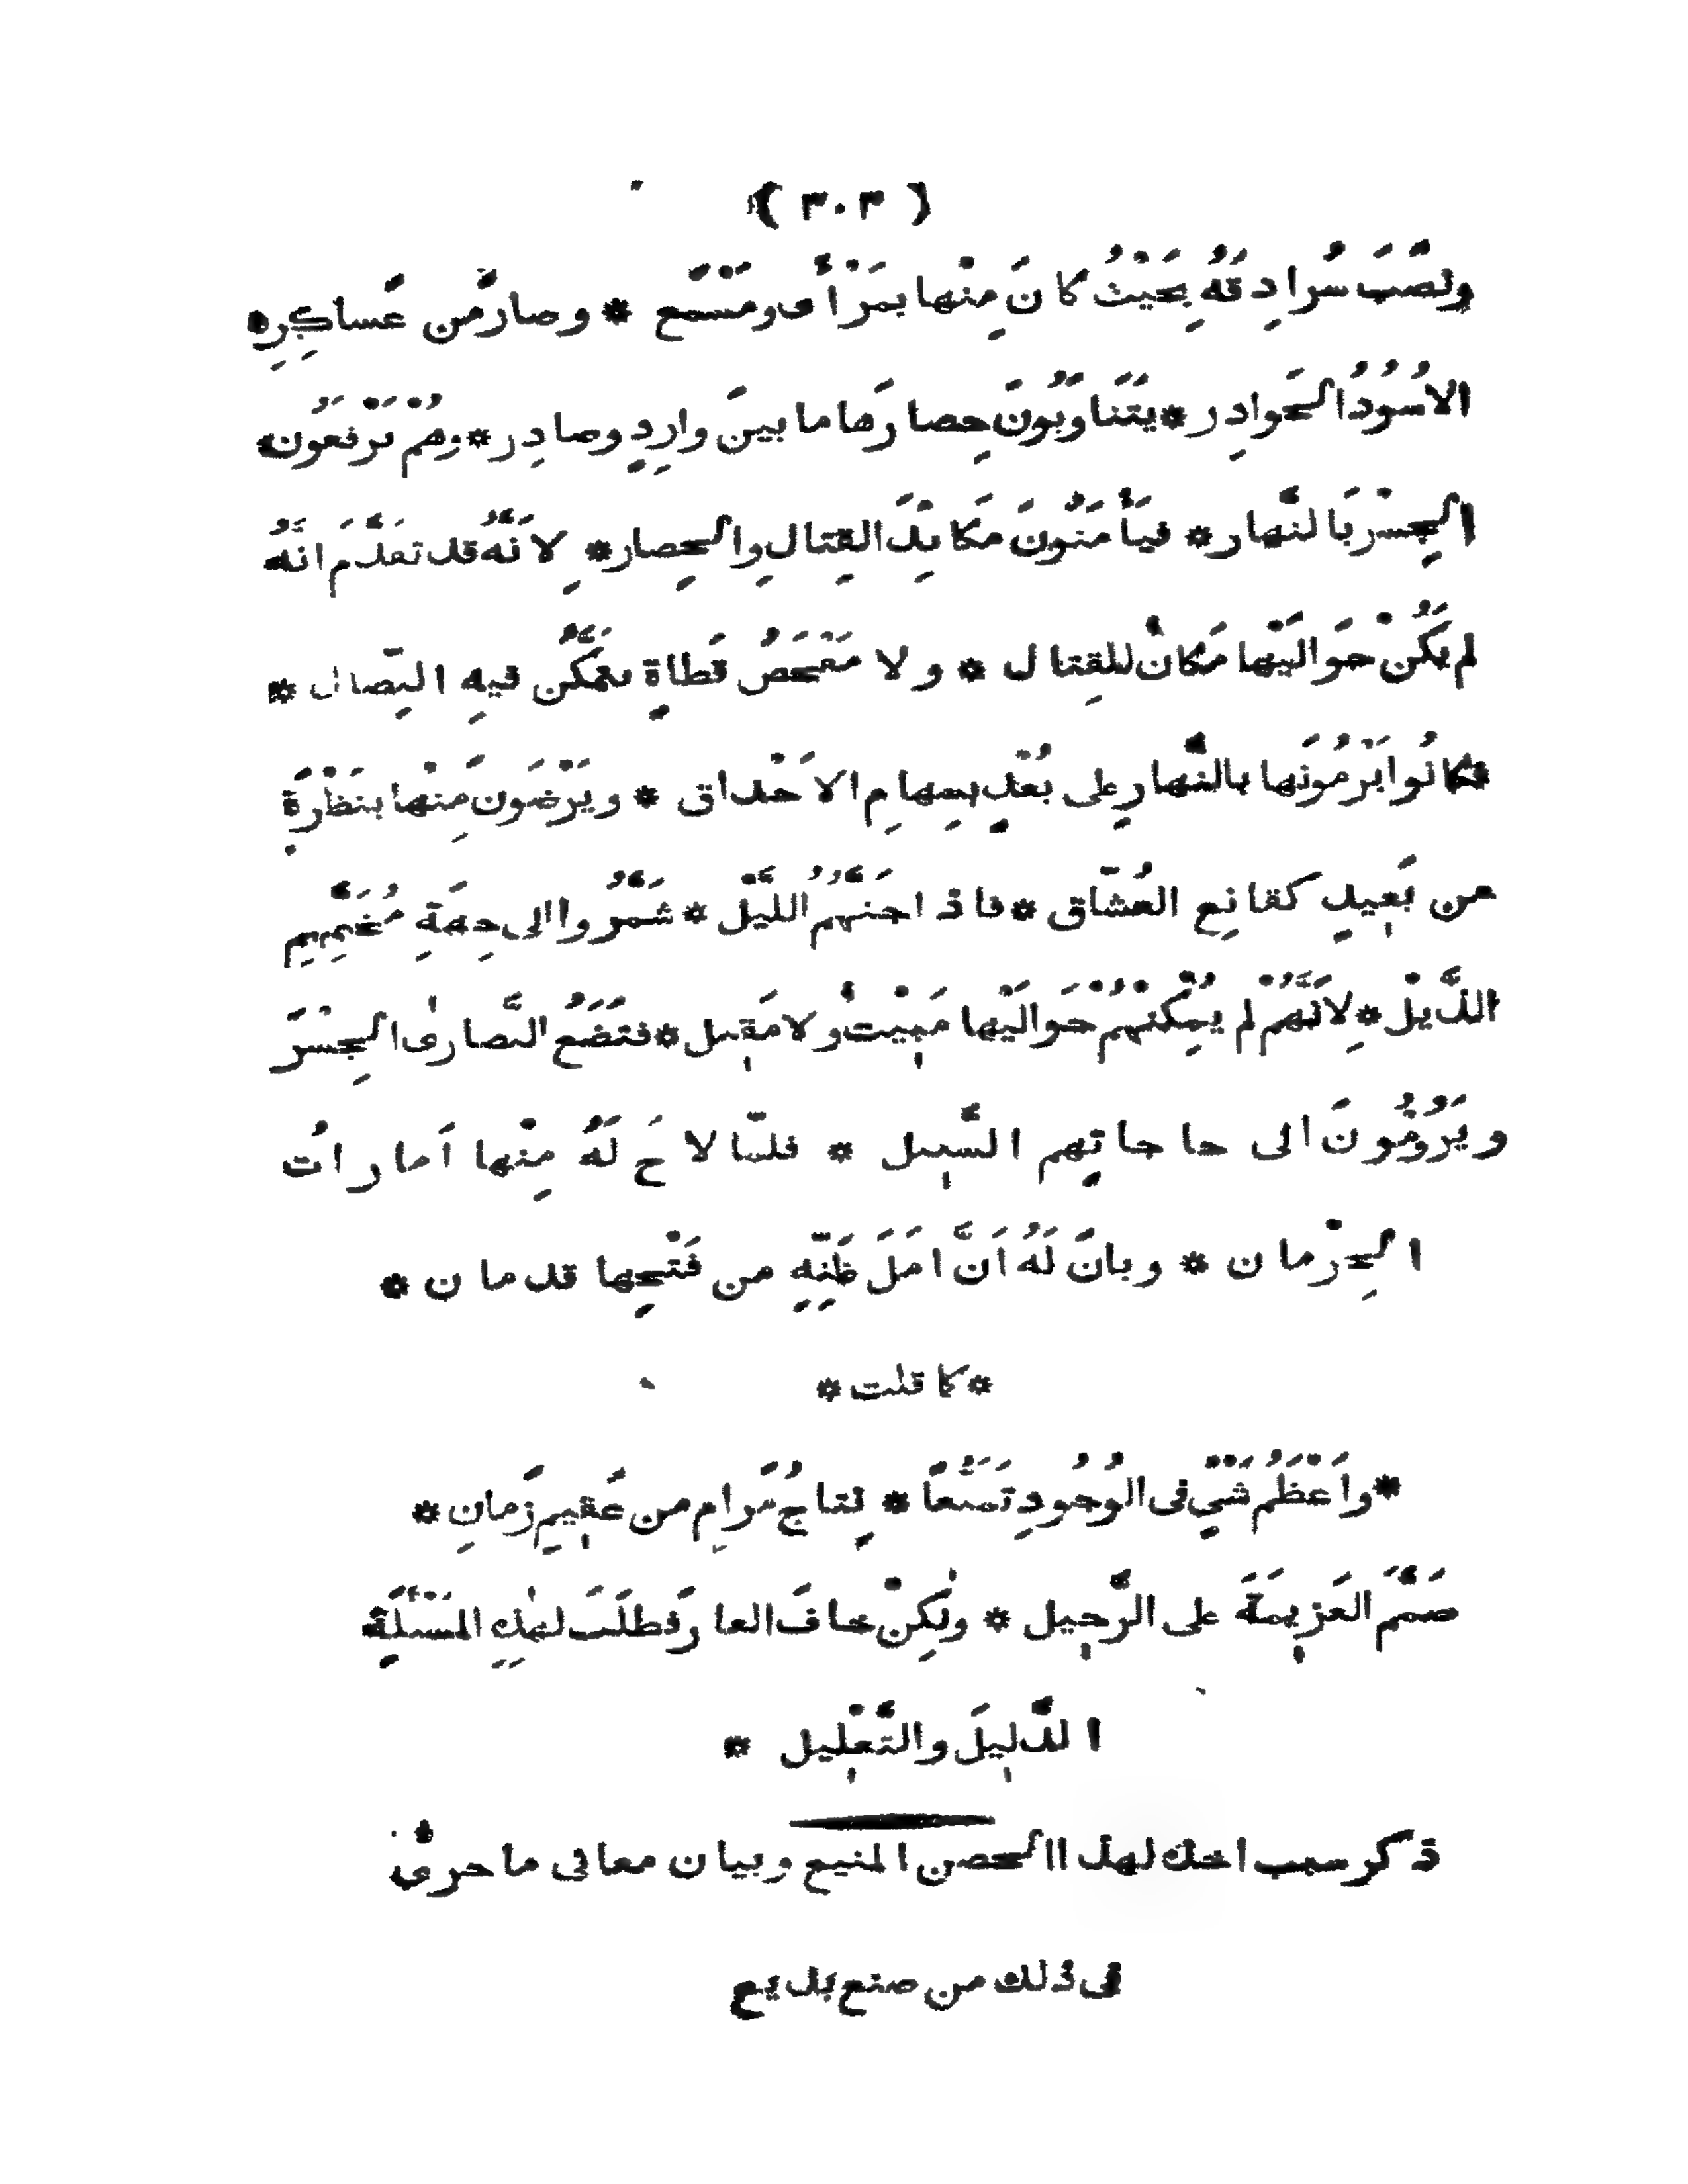 ( ٣٠٣ )
ونَصَبَ سُرادِقَهُ بِحَيْثُ كانَ مِنْها بمَرْأًى ومَسْمَع * وصارَ من عَساكِرِه
الاُسُودُ الحَوادِر * يَتَناوَبُونَ حِصارَها ما بينَ وارِدٍ وصادِر * وهُمْ يَرْفَعُون
الجِسْرَ بالنَّهار * فيَأْمَنُونَ مَكايِدَ القِتالِ والحِصار * لِاَنَّهُ قد تقدَّمَ انَّهُ
لم يَكُنْ حَوالَيْها مَكانٌ للقِتال * ولا مَفْحَصُ قَطاةٍ يتمَكَّن فيهِ النِّصال *
فكانُوا يَرْمُونَها بالنَّهارِ على بُعْدٍ بسِهامِ الاَحْداق * ويَرْضَونَ مِنْها بنَظْرَةٍ
من بَعِيدٍ كقانِعِ العُشّاق * فاذا جَنَّهُمُ اللَّيْل * شَمَّرُوا الى جِهَةِ مُخَيَّمِهِم
الذَّيْل * لِاَنَّهُمْ لم يُمْكِنْهُمْ حَوالَيْها مَبِيْتٌ ولا مَقِيل * فتَضَعُ النَّصارىٰ الجِسْرَ
ويَرُومُونَ الى حاجاتِهم السَّبِيل * فلمّا لاحَ لَهُ مِنْها اَماراتُ
الحِرْمان * وبانَ لَهُ اَنَّ امَلَ ظَنِّهِ من فَتْحِها قد مان *
* كما قلت *
* واَعْظَمُ شَيْءٍ فى الوُجُودِ تَمَنُّعاً * نِتاجُ مَرامٍ من عَقِيمِ زَمانِ *
صَمَّمَ العَزِيمَةَ على الرَّحِيل * ولٰكِنْ خافَ العارَ فطلَبَ لهٰذِهِ المَسْئَلَةِ
الدَّلِيلَ والتَّعْلِيل *
ذكر سبب اخذه لهذا الحصن المنيع وبيان معانى ما جرى
فى ذلك من صنع بديع